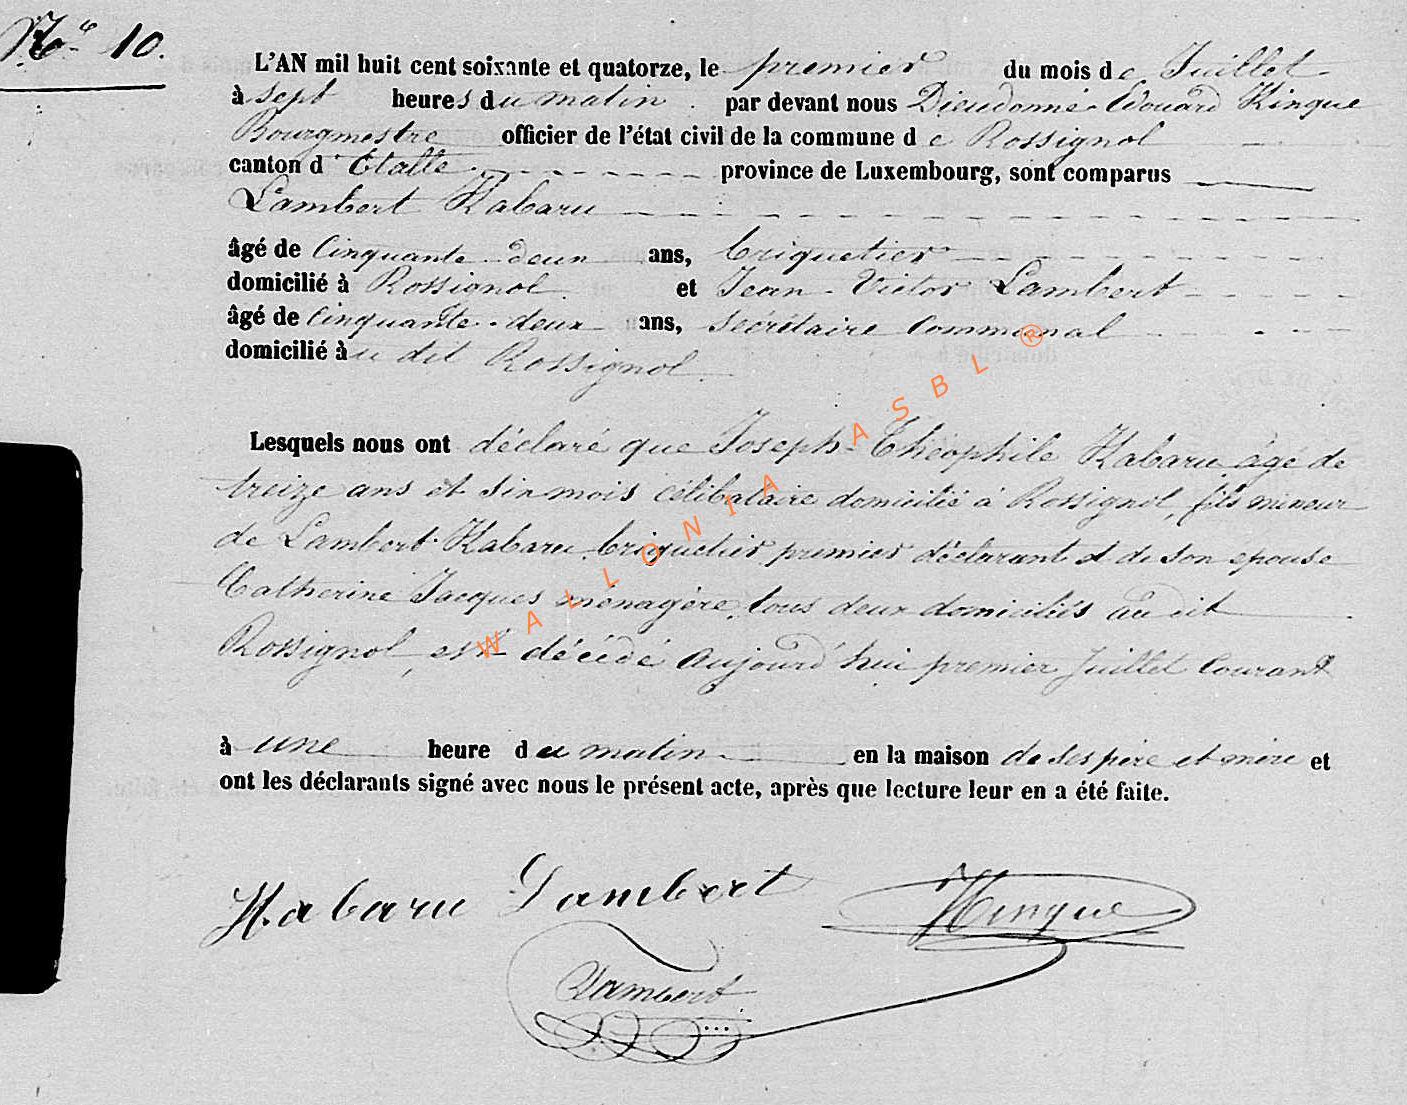 N.° 10.
L'AN mil huit cent soixante et quatorze, le premier du mois de Juillet
à sept heures du matin par devant nous Dieudonné Edouard Hinque
Bourgmestre officier de l'état civil de la commune de Rossignol
canton d'Etalle province de Luxembourg, sont comparus
Lambert Habaru
âgé de Cinquante deux ans, briquetier
domicilié à Rossignol et Jean Victor Lambert
âgé de Cinquante-deux ans, Secrétaire Communal
domicilié àu dit Rossignol.
Lesquels nous ont déclaré que Joseph-Théophile Habaru âgé de
treize ans et six mois célibataire domicilié à Rossignol, fils mineur
de Lambert Habaru briquetier premier déclarant et de son epouse
Catherine Jacques ménagère, tous deux domiciliés au dit
Rossignol, est décédé aujourd'hui premier Juillet Courant
à une heure du matin en la maison de ses père et mère et
ont les déclarants signé avec nous le présent acte, après que lecture leur en a été faite.
Habaru Lambert Hinque
Lambert
WALLONIA ASBL ®